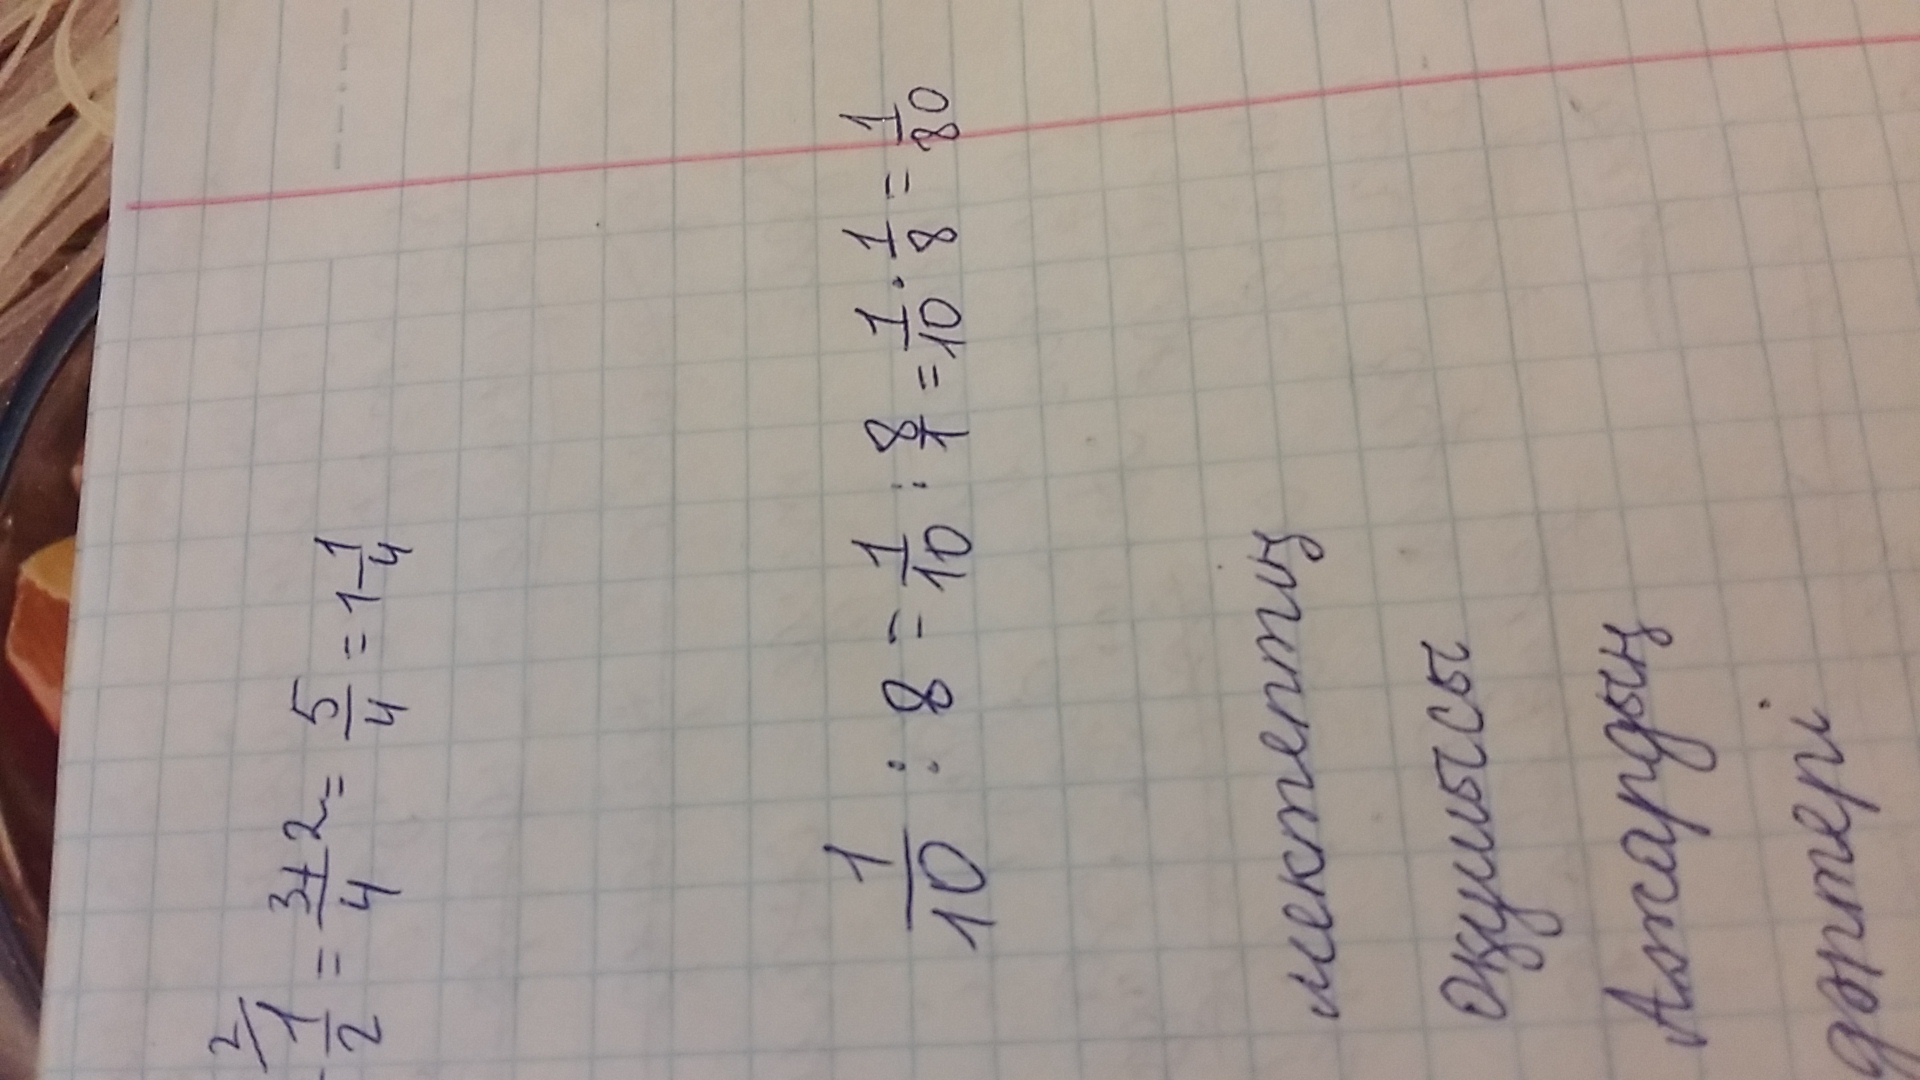 2/ 1/2 = 3+2/4 = 5/4 = 1 1/4
1/10 : 8 = 1/10 : 8/1 = 1/10 · 1/8 = 1/80
мектептің
оқушысы
Ажардың
дәптері